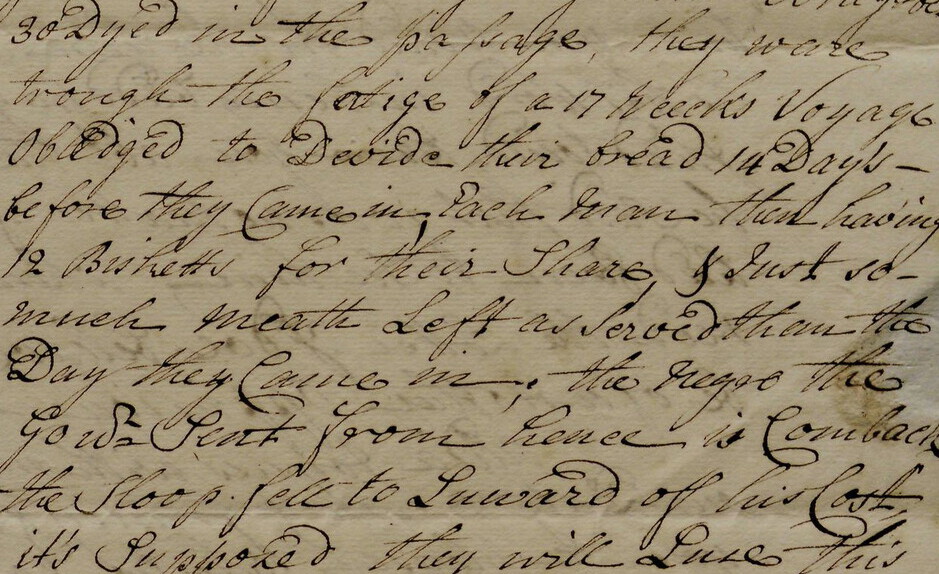 30 Dyed in the passage, they ware
trough the fatige of a 17 Weecks Voyage
Obledged to Devide their bread 14 Day's
before they Came in, Each man then having
12 Bisketts for their Share, & Just so
much meath Left as Served than the
Day they Came in, the negro the
Govr. Sent from hence is Comback
the Sloop fell to Luward of his Cost,
it's Supposed they will Luse this